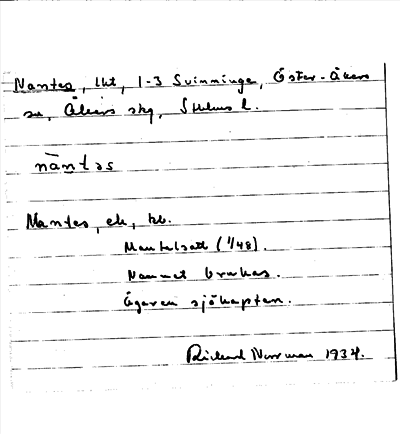 Nantes, lht, 1-3 Svinninge, Öster-Åkers
sn, Åkers skg, Sthlms l.
nāntəs
Nantes, eh, kb.
Mantalsatt (1/48).
Namnet brukas.
Ägaren sjökapten.
Rickard Norrman 1934.